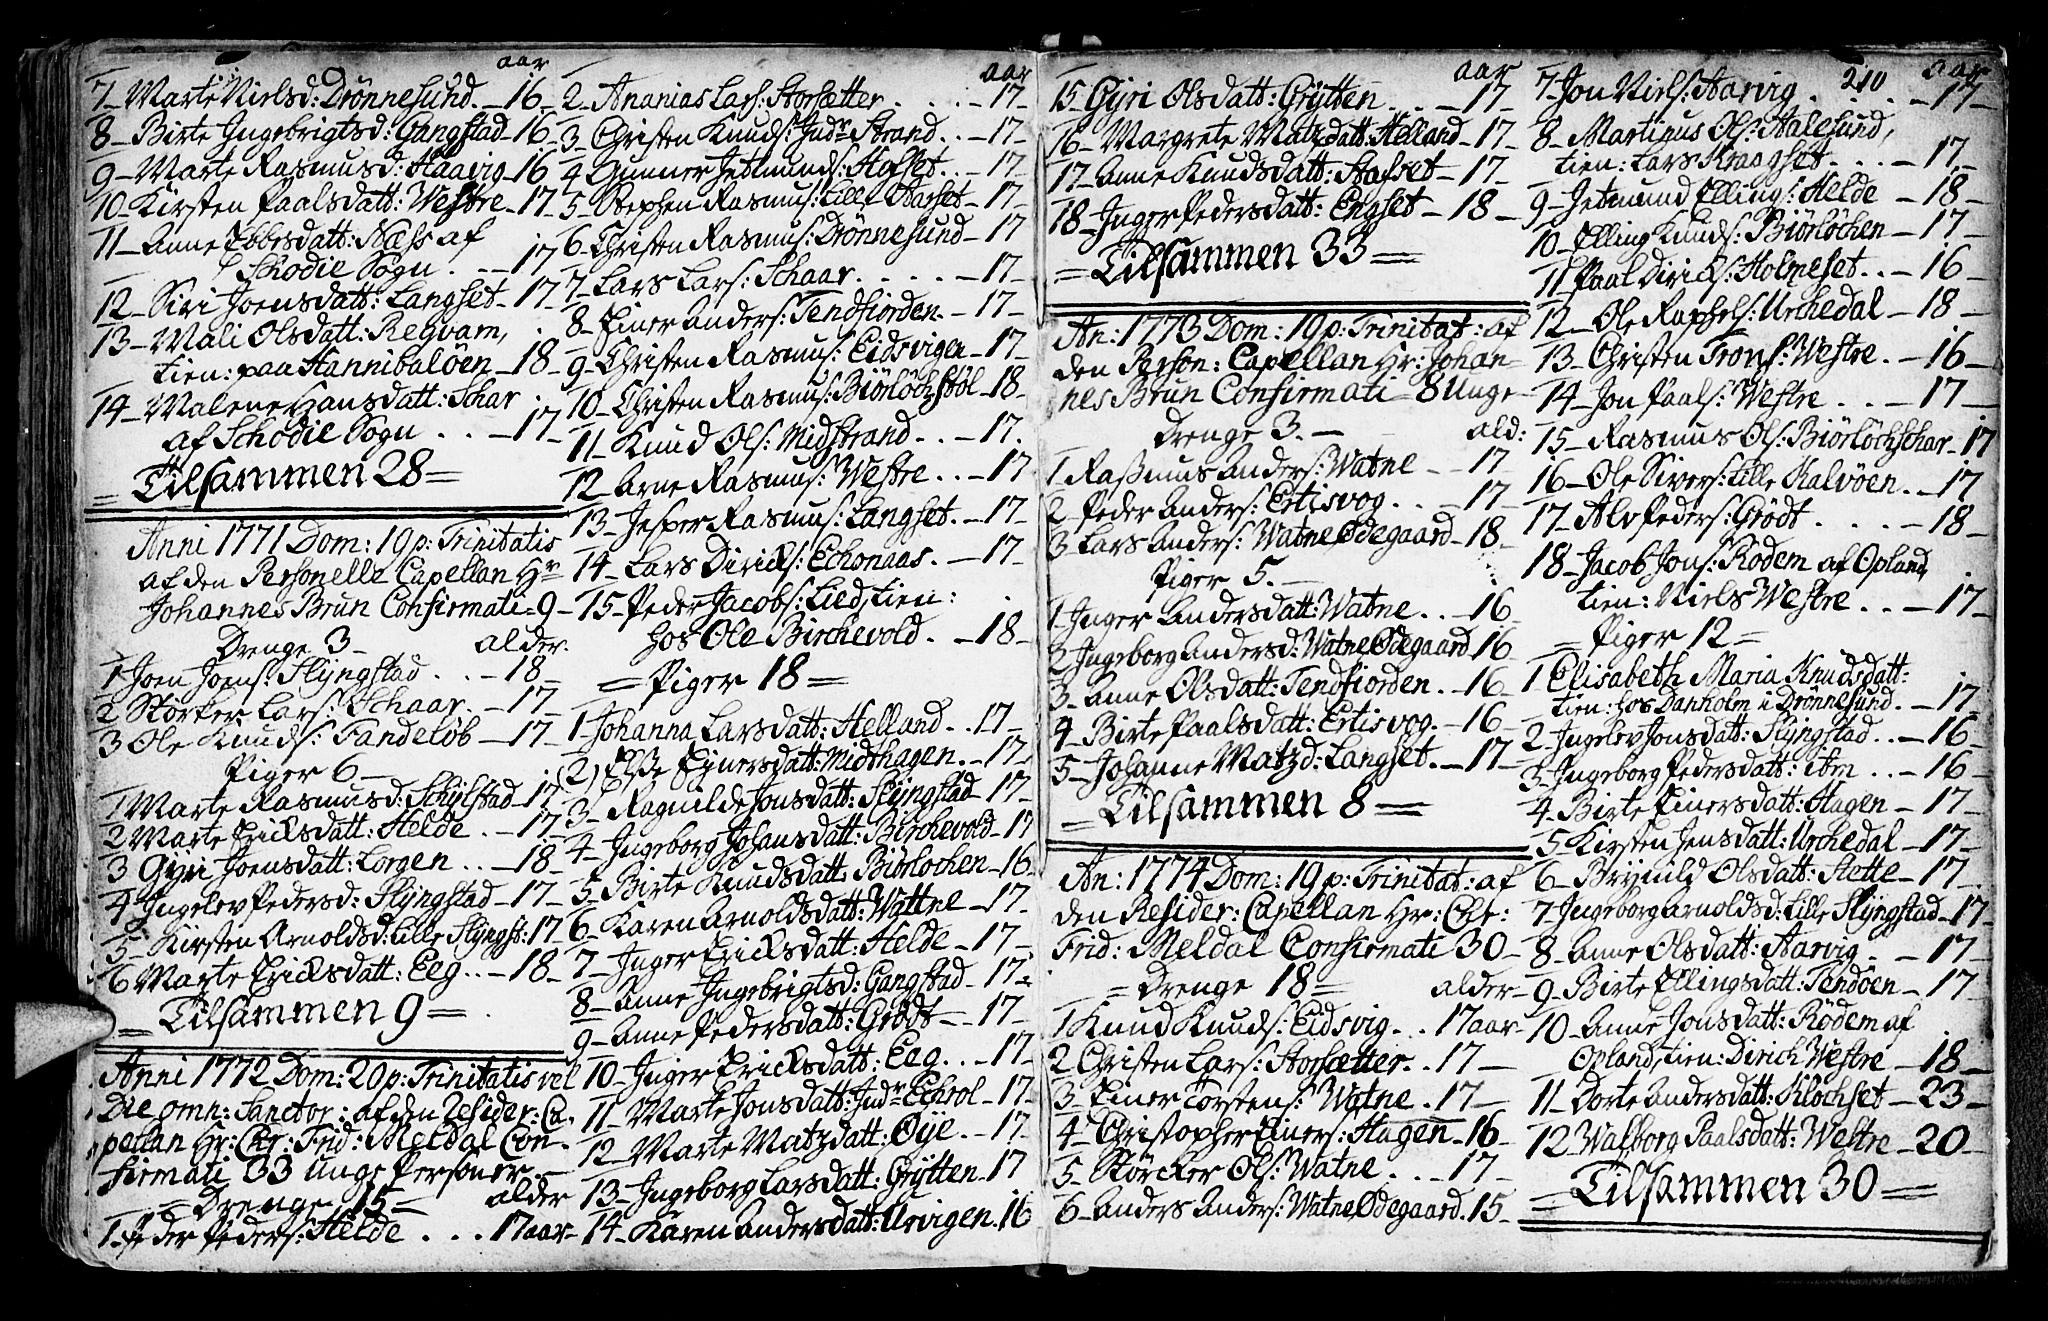 aar
7 - Marte Nielsd: Drönnesund - 16 -
8 - Birte Jngebrigtsd: Gangstad - 16 -
9 - Marte Rasmusd: Haavig - 16
10 - Kirsten Paalsdatt: Westre - 17 -
11 - Anne Ebbesdatt: Næss af
Schodie Sogn . - - 17
12 - Siri Joensdatt: Langset - 17
13 - Mali Olsdatt: Reqvam,
tien: paa Hannibalöen - 18
14 - Malene Hansdatt: Schar
af Schodie Sogn . . . - 17 -
= Tilsammen 28 =
Anni 1771 Dom: 19 p: Trinitatis
af den Personelle Capellan Hr
Johannes Brun Confirmati = 9 -
Drenge 3 - alder.
1 Joen Joens: Slyngstad . . - 18 -
2 Störker Lars: Schaar . - 17 -
3 Ole Knuds: Fandelöb - 17 -
Piger 6 -
1 Marte Rasmusd: Schylstad - 17
2 Marte Ericksdatt: Helde . - 17 -
3 Gyri Joensdatt: Lorgen . . - 18 -
4 Jngelev Pedersd: Slyngstad - 17 -
5 - Kirsten Arnoldsd: Lille Slyngst: 17
6 Marte Ericksdatt: Eeg . . - 18 -
= Tilsammen 9 =
Anni 1772 Dom: 20 p: Trinitatis vel
Die omn: Sanctor: af den Resider: Ca-
pellan Hr: Chr: Frid: Meldal Con-
firmati 33 unge Personer -
= Drenge 15 = alder
1 - Peder Peders: Helde . . . 17 aar -
aar
2 - Ananias Lars: Storsætter . . . - 17 -
3 - Christen Knuds: Jndr Strand . . - 17 -
4 - Gunner Jetmunds: Hofset . . - 17 -
5 - Stephen Rasmus: Lille Harset - 17 -
6 - Christen Rasmus: Drönnesund - 17
7 - Lars Lars: Schaar . . . . . - 17 -
8 - Einer Anders: Tendfiorden . - 17 -
9 - Christen Rasmus: Eidsvigen - 17 -
10 - Christen Rasmus: Biörlöchstöl - 18 -
11 - Knud Ols: Midstrand . . - 17 .
12 - Arne Rasmus: Westre . . - 17
13 - Jesper Rasmus: Langset . - 17 -
14 - Lars Diricks: Echonaas . - 17 -
15 - Peder Jacobs: Lied, tien:
hos Ole Birchevold . - 18 -
= Piger 18 =
1 - Johanna Larsdatt: Helland . . 17 -
2 Else Einersdatt: Midthagen . - 17 -
3 - Ragnilde Jonsdatt: Slyngstad - 17 -
4 - Jngeborg Johansdatt: Birchevold - 17
5 - Birte Knudsdatt: Biörlochen - 16 -
6 - Karen Arnoldsdatt: Wattne - 17 -
7 - Jnger Ericksdatt: Helde - 17 -
8 - Anne Jngebrigtsd: Gangstad - 17 -
9 - Anne Pedersdatt: Grödt - 17 -
10 - Jnger Ericksdatt: Eeg . . - 17 -
11 - Marte Jonsdatt: Jndr Echrol - 17 -
12 - Marte Matzdatt: Öye . - 17 -
13 - Jngeborg Larsdatt: Grytten - 17
14 - Karen Andersdatt: Urvigen . 16
aar
15 - Gyri Olsdatt: Grytten . . - 17 -
16 - Margrete Matzdatt: Helland - 17 -
17 - Anne Knudsdatt: Stafset - 17 -
18 - Jnger Pedersdatt: Engset - 18 -
= Tilsammen 33 =
An: 1773 Dom: 19 p: Trinitat: af
den Person: Capellan Hr: Johan-
nes Brun Confirmati = 8 Unge -
Drenge 3. - ald:
1 - Rasmus Anders: Watne - - 17 -
2 - Peder Anders: Ertisvog . . - 17 -
3 - Lars Anders: Watne Ödegaard - 18 -
Piger 5. -
1 - Jnger Andersdatt: Watne . . - 16 -
2 - Jngeborg Andersd: Watne Ödegaard 16 -
3 - Anne Olsdatt: Tendfiorden . - 16 -
4 - Birte Paalsdatt: Ertisvog . - 16 -
5 - Johanne Matzd: Langset . - 17 -
= Tilsammen 8 =
An: 1774 Dom: 19 p: Trinitat: af
den Resider: Capellan Hr: Chr:
Frid: Meldal Confirmati 30 -
= Drenge 18 = alder -
1 Knud Knuds: Eidsvig . . 17 aar -
2 Christen Lars: Storsætter . . 17 -
3 - Einer Torstens: Watne . 17 -
4 - Christopher Einers: Hagen - 16 -
5 - Störcker Ols: Watne . . . 17 -
6 - Anders Anders: Watne Ödegaard . 15 -
210 aar
7 - Jon Niels: Aarvig . . . . - 17 -
8 - Martinus Ols: Aalesund,
tien: Lars Kraagset . . . - 17 -
9 - Jetmund Ellings: Helde - 18 -
10 - Elling Knuds: Biörlöchen - 17 -
11 Paal Diricks: Holmeset . . - 16
12 - Ole Raphels: Urchedal - 18 -
13 - Christen Trons: Westre . - 16 -
14 - Jon Paals: Westre . . . - 17 -
15 - Rasmus Ols: Biörlöchschar - 17
16 - Ole Sivers: Lille Kalvöen . . - 17
17 - Alv Peders: Grödt . . . . - 18
18 - Jacob Jons: Rödem af Opland,
tien: Niels Westre . . . - 17 -
= Piger 12 =
1 Elisabeth Maria Knudsdatt:
tien: hos Danholm i Drönnesund . - 17 -
2 - Jngelev Jonsdatt: Slyngstad . . - 16 -
3 - Jngeborg Pedersdatt: ibm . . - 16 -
4 - Birte Einersdatt: Hagen - 17 -
5 - Kirsten Jensdatt: Urchedal - 17 -
6 - Brynild Olsdatt: Stette - 17 -
7 - Jngeborg Arnoldsd: Lille Slyngstad - 17 -
8 - Anne Olsdatt: Aarvig . - 17 -
9 - Birte Ellingsdatt: Tendöen - 17 -
10 - Anne Jonsdatt: Rödem af
Opland, tien: Dirich Westre - 18 -
11 - Dorte Andersdatt: Klochset - 23 -
12 - Walborg Paalsdatt: Westre - 20 -
= Tilsammen 30 =